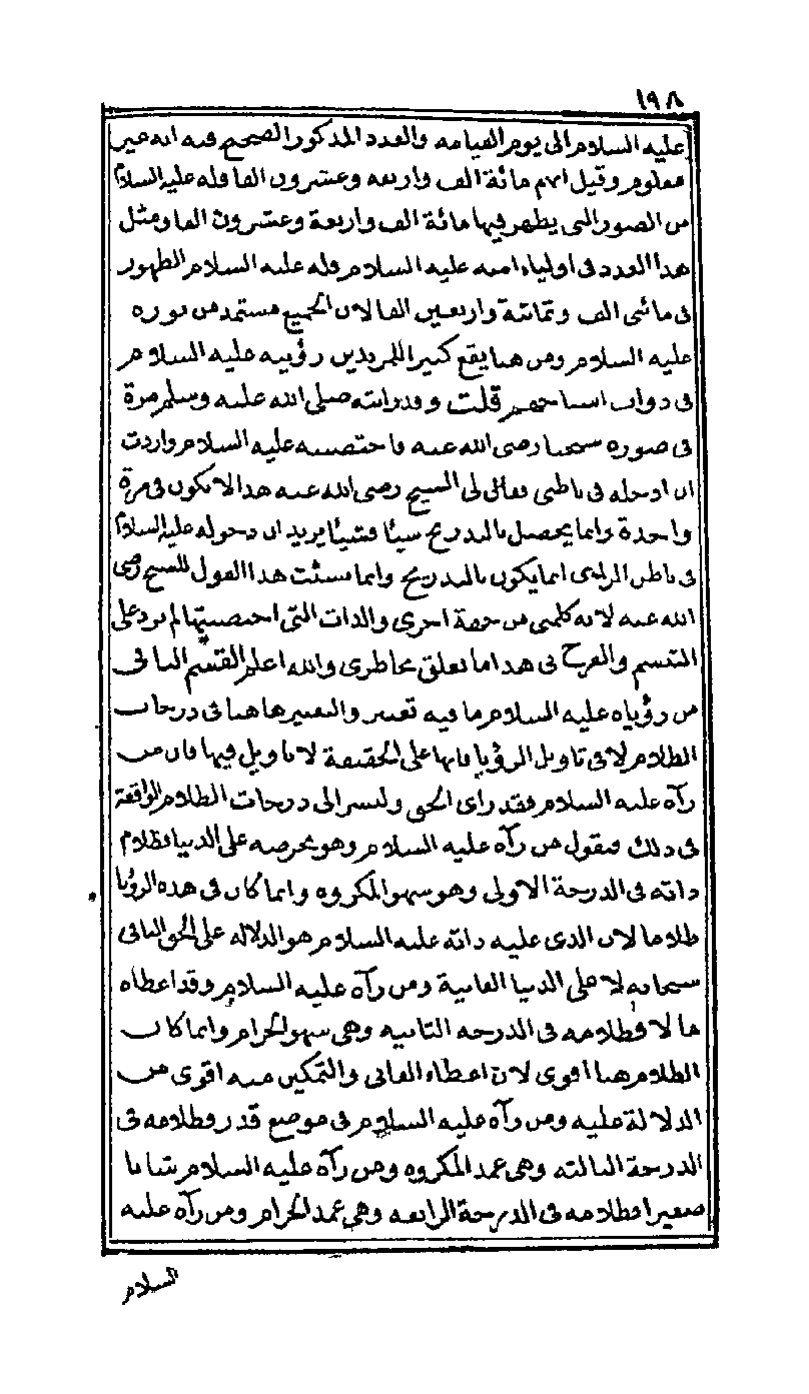 ١٩٨
عليه السلام الى يوم القيامه والعدد المذكور الصحيح فيه انه غير
معلوم وقيل انهم مائة الف واربعه وعشرون الفا فله عليه السلام
من الصور التي يظهر فيها مائة الف واربعة وعشرون الفا ومثل
هذا العدد في اولياء امته عليه السلام فله عليه السلام الظهور
في مائتى الف وثمانية واربعين الفا لان الجميع مستمد من نوره
عليه السلام ومن هنا يقع كثيرا للمريدين رؤيته عليه السلام
في ذوات اشياخهم قلت وقد رايته صلى الله عليه وسلم مرة
في صورة شيخنا رضى الله عنه فاحتضنته عليه السلام واردت
ان ادخله في باطني فقال لى الشيخ رضى الله عنه هذا لا يكون في مرة
واحدة وانما يحصل بالتدريج شيئا فشيئا يريد ان دخوله عليه السلام
في باطن الرائى انما يكون بالتدريج وانما نسبت هذا القول للشيخ رضى
الله عنه لانه كلمنى من جهة اخرى والذات التى احتضنتها لم تزد على
التبسم والفرح في هذا ما تعلق بخاطرى والله اعلم القسم الثانى
من رؤياه عليه السلام ما فيه تعبير والتعبير هاهنا في درجات
الظلام لا في تاويل الرؤيا فانها على الحقيقة لا تاويل فيها فان من
رآه عليه السلام فقد راى الحق ولنشر الى درجات الظلام الواقعة
في ذلك فنقول من رآه عليه السلام وهو يحرضه على الدنيا فظلام
ذاته في الدرجة الاولى وهو سهو المكروه وانما كان في هذه الرؤيا
ظلاما لان الذى عليه ذاته عليه السلام هو الدلاله على الحق الباقى
سبحانه لا على الدنيا الفانية ومن رآه عليه السلام وقد اعطاه
مالا فظلامه في الدرجه الثانيه وهى سهو الحرام وانما كان
الظلام هنا اقوى لان اعطاء الفانى والتمكين منه اقوى من
الدلالة عليه ومن رآه عليه السلام في موضع قذر فظلامه في
الدرجة الثالثه وهى عمد المكروه ومن رآه عليه السلام شابا
صغيرا فظلامه في الدرجة الرابعه وهى عمد الحرام ومن رآه عليه
السلام